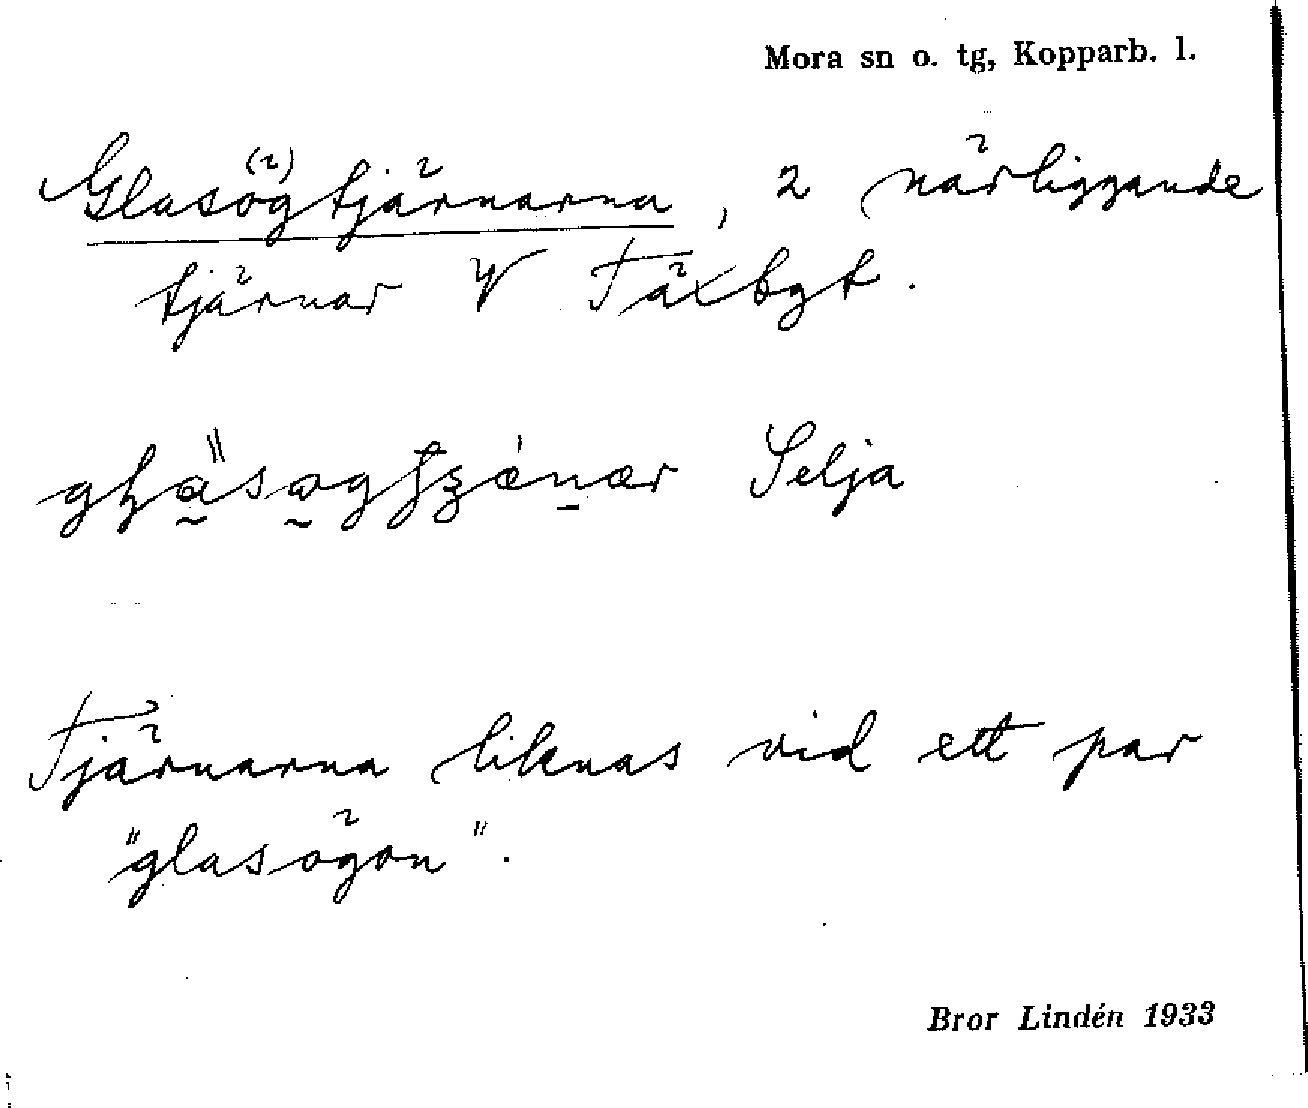 Mora sn o. tg, Kopparb. l.
Glasögtjärnarna, 2 närliggande
tjärnar V Täxbgt.
Selja
Tjärnarna liknas vid ett par
"glasögon".
Bror Lindén 1933